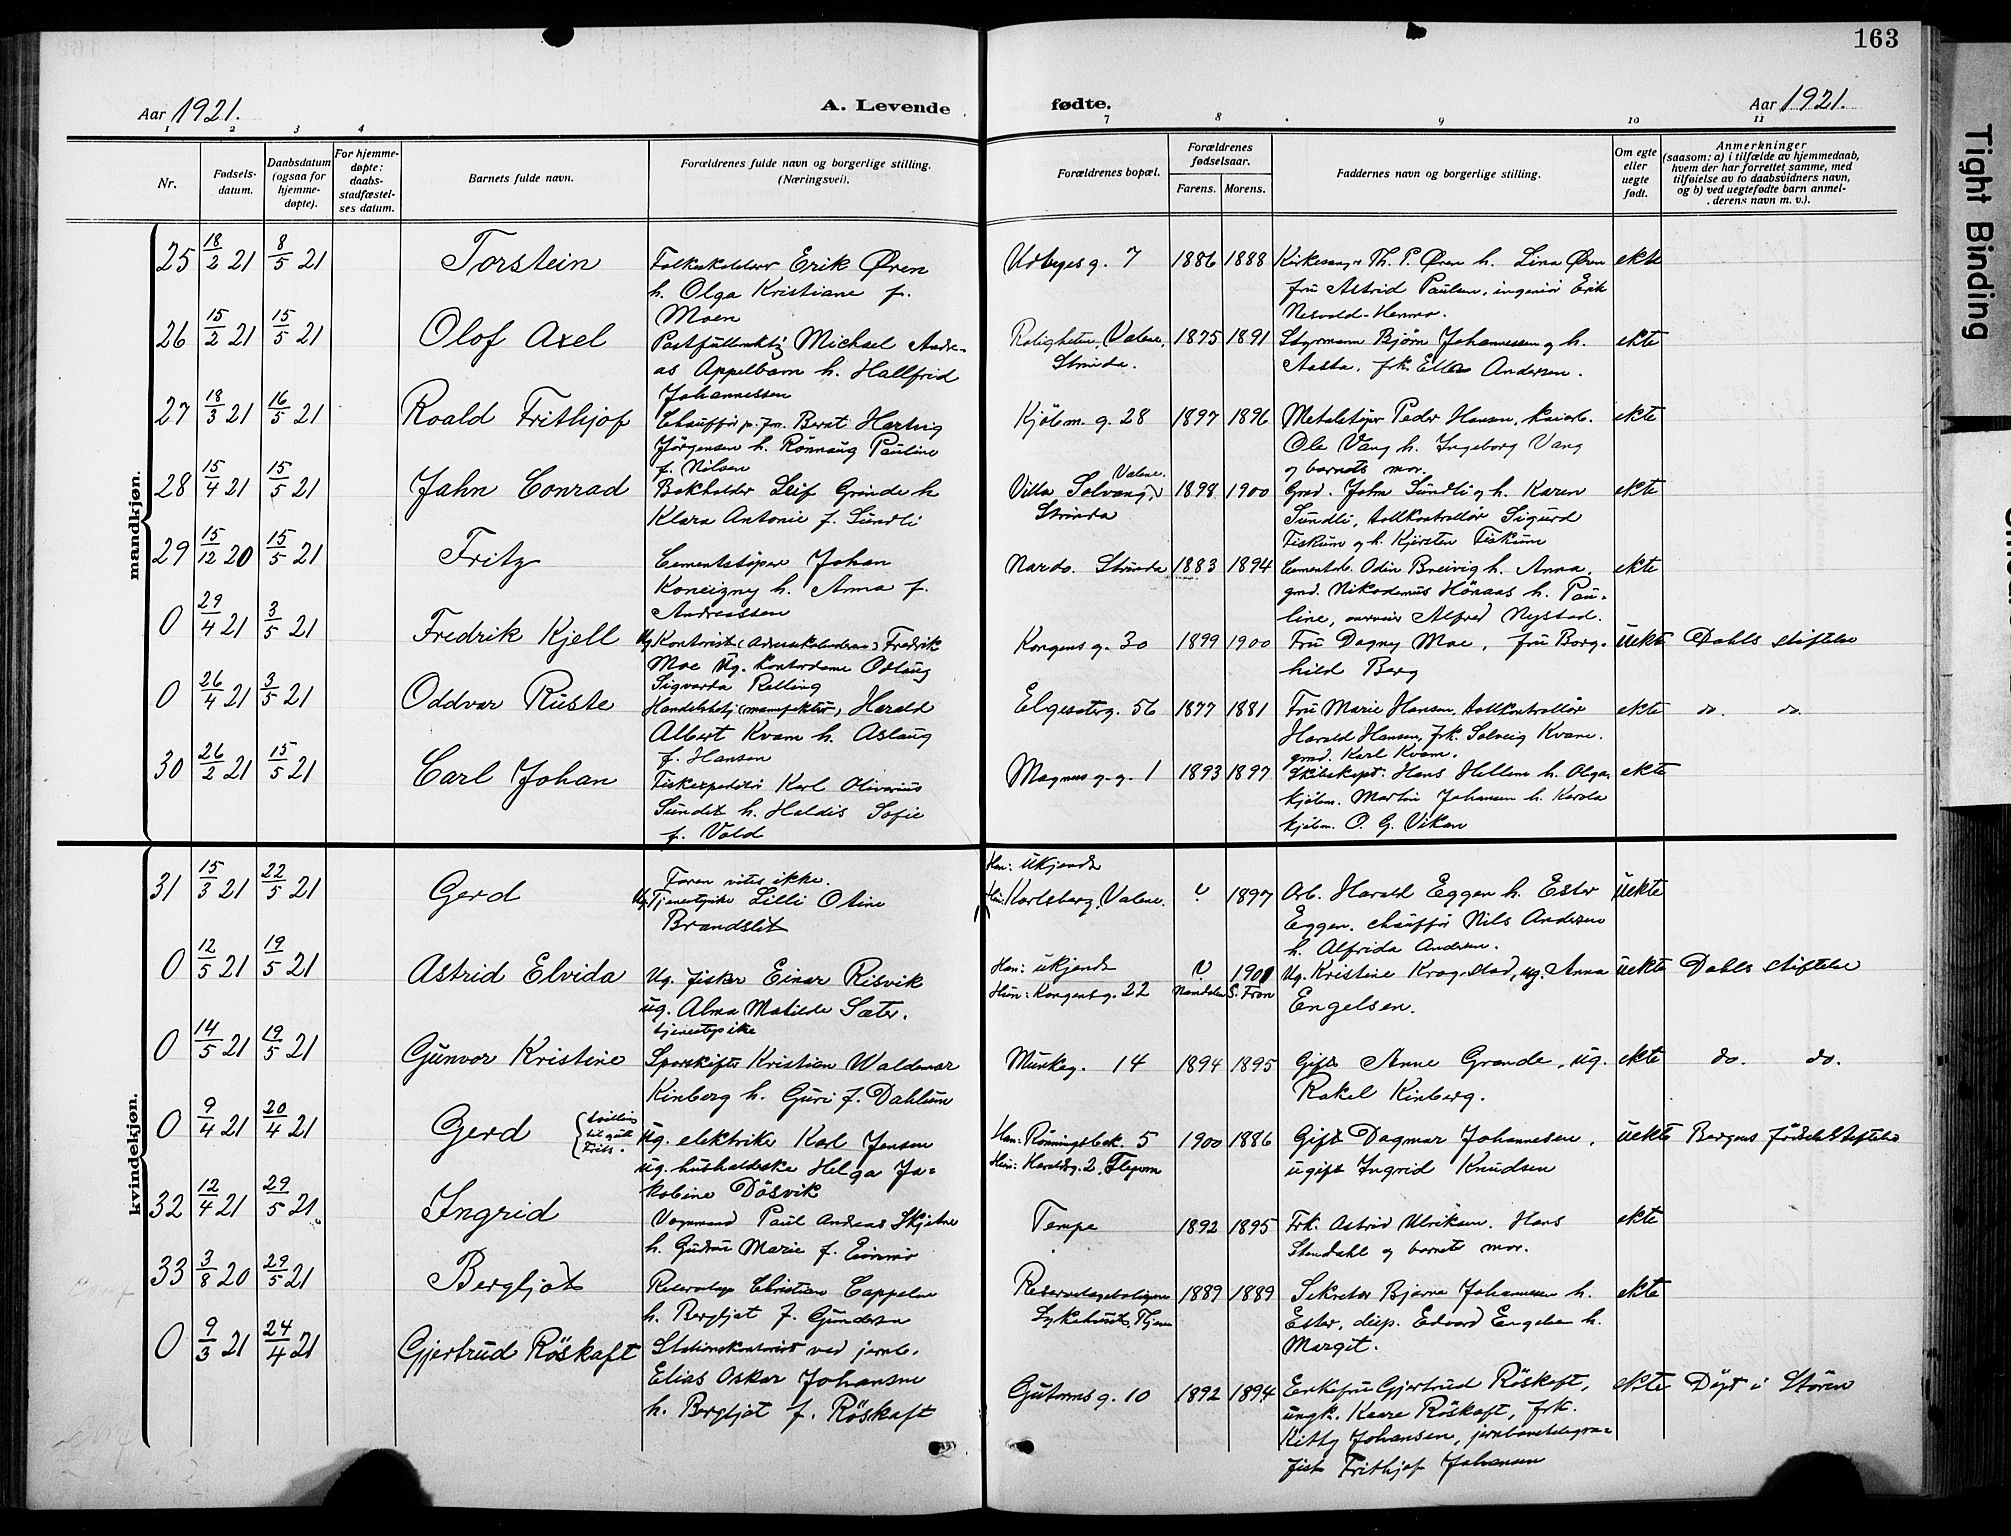 163
Aar 1921.
A. Levende fødte.
Aar 1921.
1 2 3 4 7 8 9 10 11
Nr.
Fødsels-
datum.
Daabsdatum
(ogsaa for
hjemme-
døpte).
For hjemme-
døpte:
daabs-
stadfæstel-
ses datum.
Barnets fulde navn.
Forældrenes fulde navn og borgerlige stilling.
(Næringsvei).
Forældrenes bopæl.
Forældrenes
fødselsaar.
Farens. Morens.
Faddernes navn og borgerlige stilling.
Om egte
eller
uegte
født.
Anmerkninger
(saasom: a) i tilfælde av hjemmedaab,
hvem der har forrettet samme, med
tilføielse av to daabsvidners navn,
og b) ved uegtefødte barn anmel-
derens navn m. v.).
mandkjøn.
25 18/2 21 8/5 21 Torstein
Erik Øren
h. Olga Kristiane f.
Moen
7 1886 1888
Th. P. Øren h. Lina Øren
fru Astrid Paulsen, ingeniør Erik
ekte
26 15/2 21 15/5 21 Olof Axel
Postfullmektig Michael Andre-
as Appelbom h. Hallfrid
Johannessen
Roligheten, Valene,
Strinda.
1875 1891
Styrmann Bjørn Johannessen og h.
Aasta, frk. Andersen.
ekte
27 18/3 21 16/5 21 Roald Frithjof
Chauffør Berat Hartvig
Jørgensen h. Rønnaug Pauline
f. Nilsen
Kjøbm. g. 28 1897 1896
Peder Hansen,
Ole Vang h. Ingeborg Vang
og barnets mor.
ekte
28 15/4 21 15/5 21 Jahn Conrad
Bokholder Leif Grinde h
Klara Antonie f. Sundli
Villa Solvang, Valene,
Strinda
1898 1900
Grd. John Sundli og h. Karen
Sundli, tollkontrollør Sigurd
Fiskum og h. Kjersten Fiskum
ekte
29 15/12 20 15/5 21 Fritz
Cementstøper Johan
Koneizny h. Anna f.
Andreassen
Nardo. Strinda 1883 1894
Odin Breivig h. Anna,
grd. Nikodemus Hönaas h. Pau-
line, Alfred Nystad.
ekte
0 29/4 21 3/5 21 Fredrik Kjell
Ug. Kontorist Fredrik
Moe Ug. kontordame Odlaug
Sigvarda Relling
Kongens g. 30 1899 1900
Fru Dagny Moe, fru Borg-
hild Berg
uekte Dahls stiftelse
0 26/4 21 3/5 21 Oddvar Ruste
Handelsbetj (manufaktur) Harald
Albert Kvam h. Aslaug
f. Hansen
Elgesæterg. 56 1877 1881
Fru Marie Hansen, tollkontrollør
Harald Hansen, frk. Solveig Kvam.
grd. Karl Kvam.
ekte do. do.
30 26/2 21 15/5 21 Carl Johan
Fiskexpeditør Karl Olivarius
Sundet h. Haldis Sofie
f. Vold
Magnus g. g. 1 1893 1897
Hans Hellem h. Olga,
kjøbm. Martin Johansen h. Karola
kjøbm. O. G. Viken
ekte
kvindekjøn.
31 15/3 21 22/5 21 Gerd
Faren vites ikke.
Ug. Tjenestepike Lilli Otine
Brandslet
Han: ukjendt
Hun: Karlsberg, Valene.
? 1897
Arb. Harald Eggen h. Ester
Eggen, chauffør Nils Andersen
h. Alfrida Andersen.
uekte
0 12/5 21 19/5 21 Astrid Elvida
Ug. fisker Einar Risvik
ug. Alma Matilde Sæter.
tjenestepike
Han: ukjendt
Hun: Kongensg. 22
? Namdalen 1901 S. Fron
Ug. Kristine Krogstad, ug. Anna
Engelsen.
uekte Dahls stiftelse
0 14/5 21 19/5 21 Gunvor Kristine
Sporskifter Kristian Waldemar
Kinberg h. Guri f. Dahlum
Munkeg. 14 1894 1895
Gift Anne Grande, ug.
Rakel Kinberg.
ekte do. do.
0 9/4 21 20/4 21 Gerd
(tvilling
til gutt
Frits.
ug. elektriker Karl Jensen
ug. husholderske Helga Ja-
kobine Døsvik
Han: Rønningsbak. 5
Hun: Haraldsg. 2,
1900 1886
Gift Dagmar Johannesen,
ugift Ingrid Knudsen
uekte Bergens fødselsstiftelse
32 12/4 21 29/5 21 Ingrid
Vognmand Paul Andreas Skjetne
h. Gudrun Marie f. Einmo
Tempe 1892 1895
Frk. Astrid Ulriksen. Hans
Stendahl og barnets mor.
ekte
33 3/8 20 29/5 21 Bergljot
Reservelæge Christian Cappelen
h. Bergljot f. Gundersen
Reservelægeboligen
Sykehuset,
1889 1889
Sekretær Bjarne Johannesen h.
Ester, disp. Edvard Engelsen h.
Margit.
ekte
0 9/3 21 24/4 21 Gjertrud Röskaft
Stationskontorist ved jernb.
Elias Oskar Johansen
h. Bergljot f. Röskaft
Gutormsg. 10 1892 1894
Enkefru Gjertrud Röskaft,
ungk. Kaare Röskaft, frk.
Kitty Johansen, jernbanetelegra-
fist Frithjof Johansen
ekte Döpt i Stören
Tight Binding